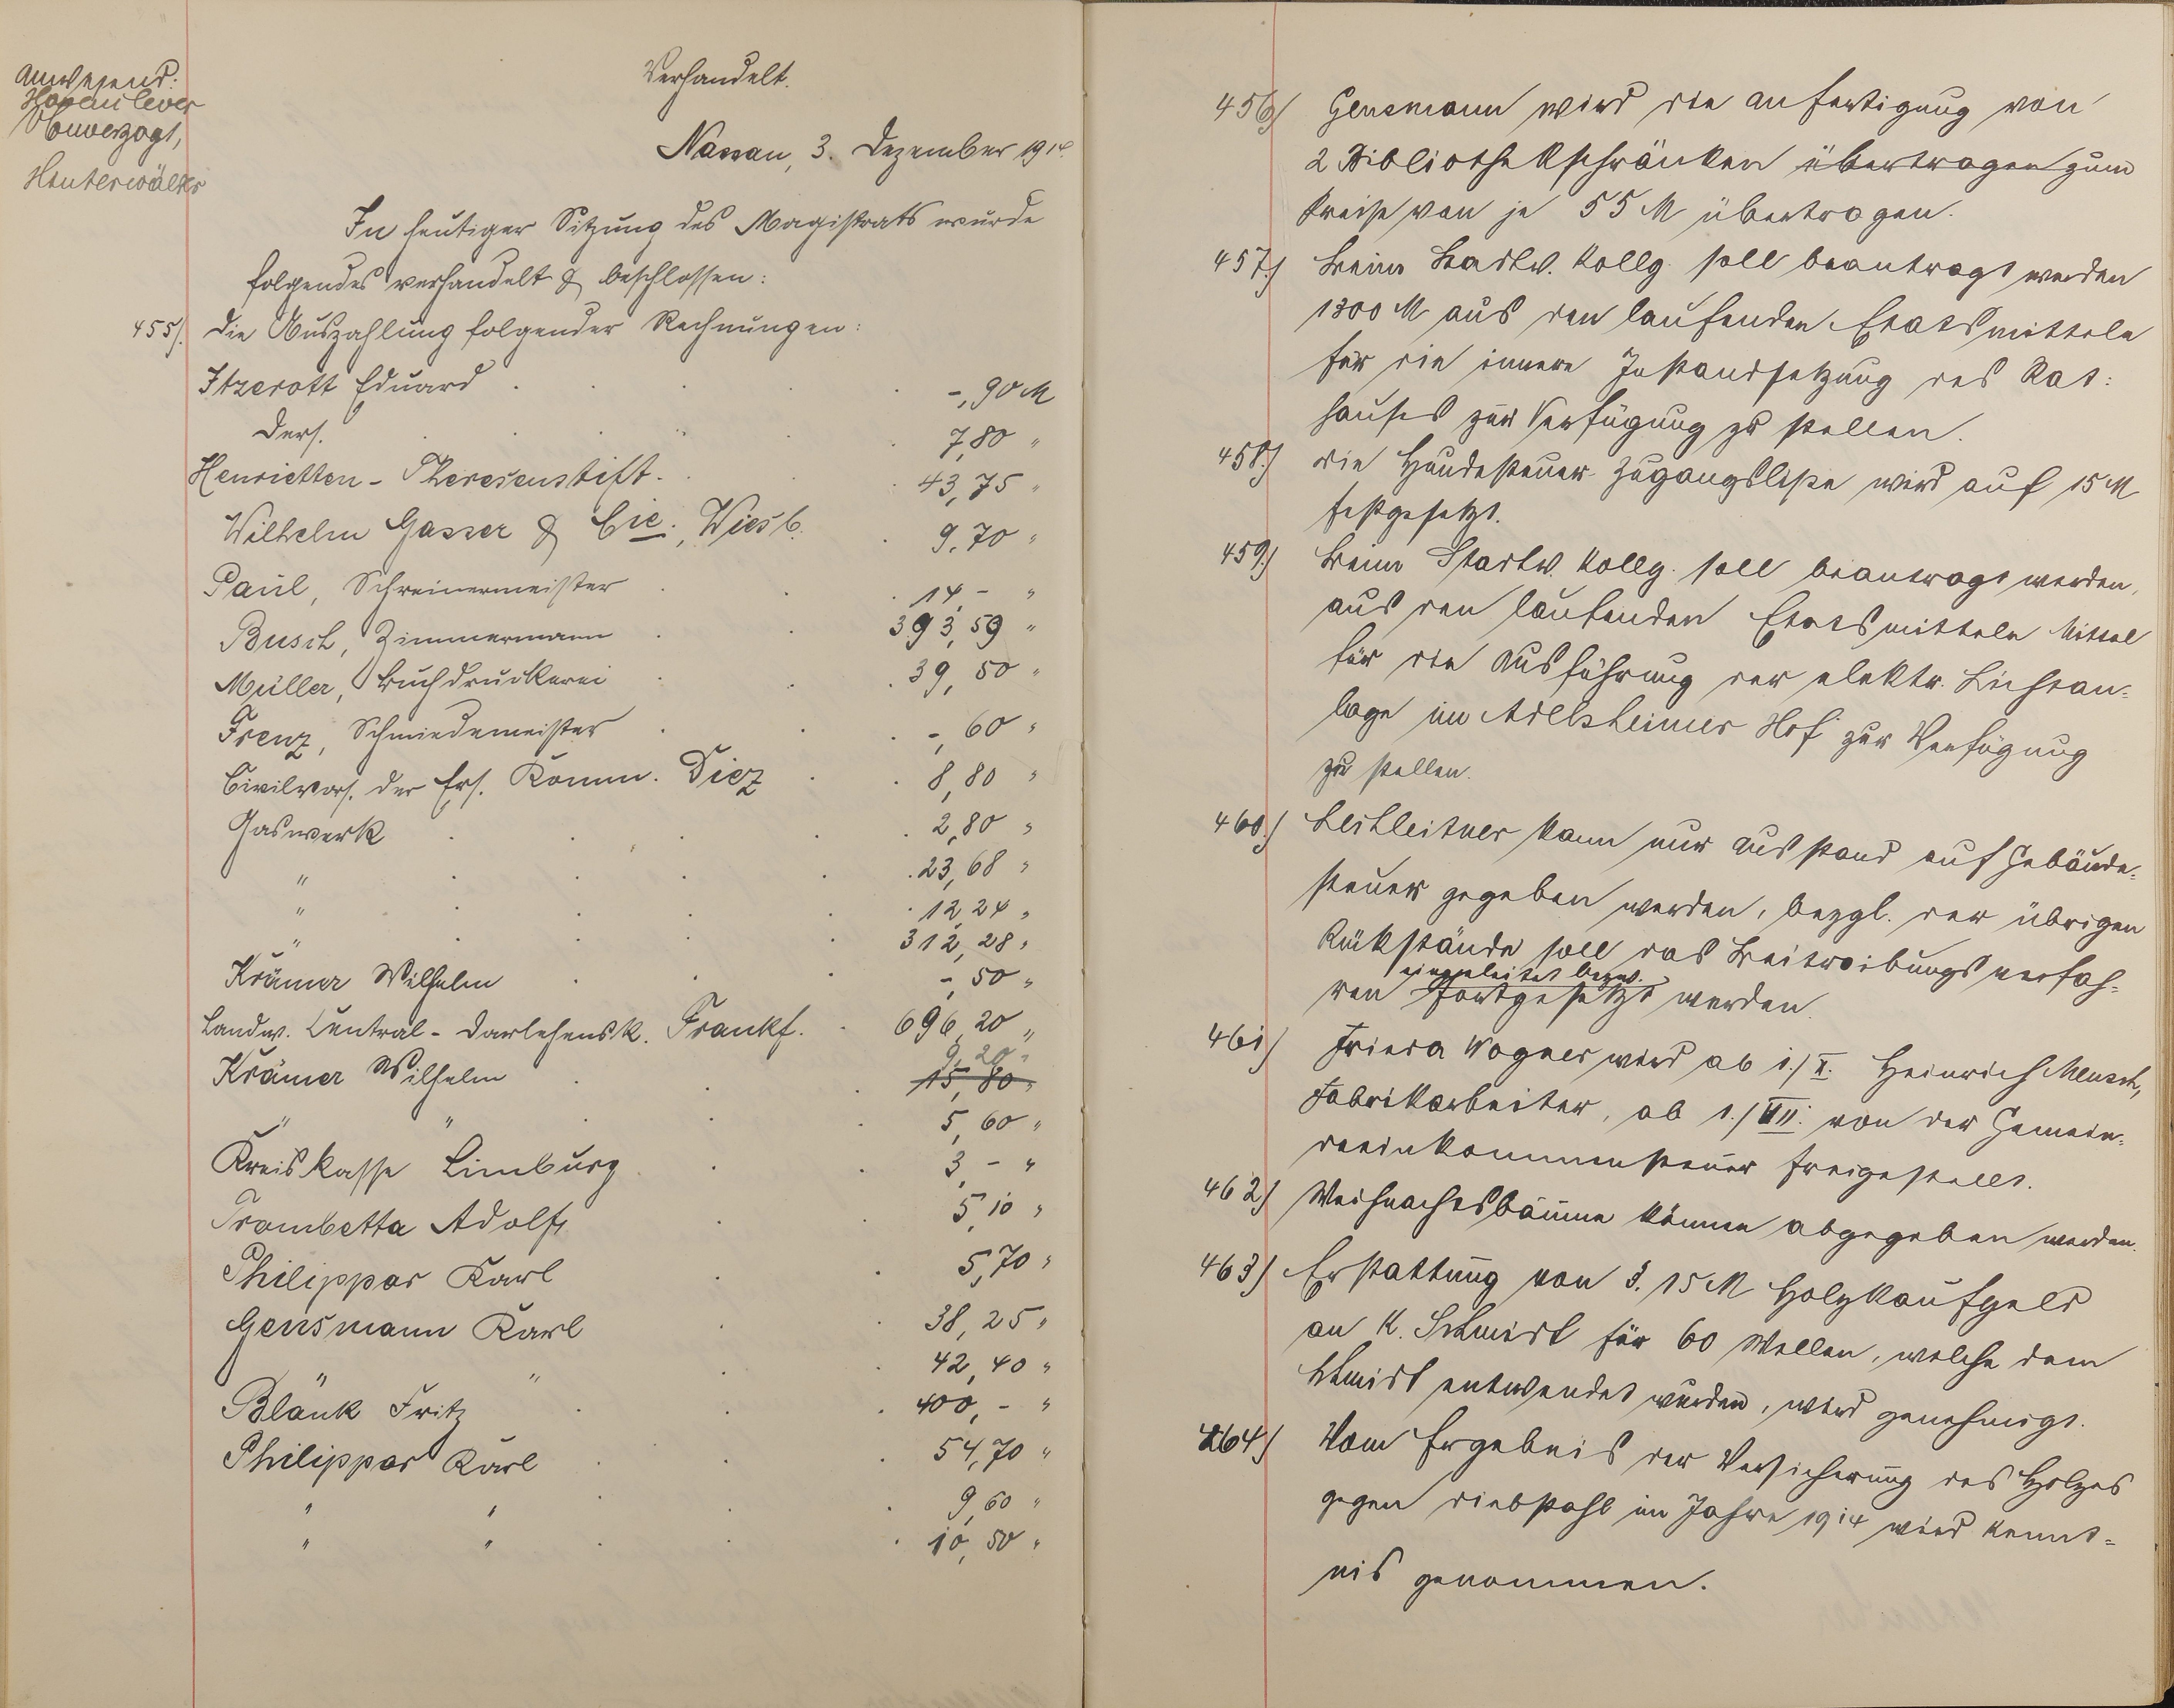 Anwesend:
Hasenclever
Unverzagt,
Hinterwälder
Verhandelt.
Nassau, 3. Dezember 1914.
In heutiger Sitzung des Magistrats wurde
folgendes verhandelt & beschlossen:
455/. Die Auszahlung folgender Rechnungen:
Itzerott Eduard . . . -,90 M
Ders. . . . . 7,80 "
Henrietten-Theresenstift. . . 43,75 "
Wilhelm Gasser & Cie., Wiesb. . 9.70 "
Paul, Schreinermeister . . . 14,- "
Busch, Zimmermann . . 393,59 "
Müller, Buchdruckerei . . . 39,50 "
Frenz, Schmiedemeister . . . -,60 "
Civilvors. der Ers. Komm. Diez . . 8,80 "
Gaswerk . . . . 2,80 "
" . . . . 23,68 "
" . . . . 12,24 "
" . . . . 312,28 "
Krämer Wilhelm . . . -,50 "
Landw. Central-Darlehensk. Frankf. . 696,20 "
9,20 "
Krämer Wilhelm . . . 15,80 "
" " . . . 5,60 "
Kreiskasse Limburg . . 3,- "
Trombetta Adolf . . 5,10 "
Philippar Karl . . 5,70 "
Gensmann Karl . . 38,25 "
" " . . 42,40 "
Blänk Fritz . . . 400,- "
Philippar Karl . . . 54,70 "
" " . . . 9,60 "
" " . . . 10,50 "
456/ Gensmann wird die Anfertigung von
2 Bibliothekschränken übertragen zum
Preise von je 55 M übertragen.
457./ Beim Stadtv. Kollg. soll beantragt werden
1300 M aus den laufenden Etatsmitteln
für die innere Instandsetzung des Rat-
hauses zur Verfügung zu stellen.
458./ Die Hundesteuer-Zugangsliste wird auf 15 M
festgesetzt.
459./ Beim Stadtv. Kollg. soll beantragt werden,
aus den laufenden Etatsmitteln Mittel
für die Ausführung der elektr. Lichtan-
lage im Adelsheimer Hof zur Verfügung
zu stellen.
460./ Leitner kann nur Ausstand auf Gebäude-
steuer gegeben werden, bezgl. der übrigen
Rückstände soll das Beitreibungsverfah-
eingeleitet bezw.
ren fortgesetzt werden.
461/ Frieda Wagner wird ab 1./X. Heinrich Mensch,
Fabrikarbeiter, ab 1./VII. von der Gemein-
deeinkommensteuer freigestellt.
462/ Weihnachtsbäume können abgegeben werden.
463/ Erstattung von 3.15 M Holzkaufgeld
an K. Schmidt für 60 Wellen, welche dem
Schmidt entwendet wurden, wird genehmigt.
464/ Vom Ergebnis der Versicherung des Holzes
gegen Diebstahl im Jahre 1914 wird Kennt-
nis genommen.